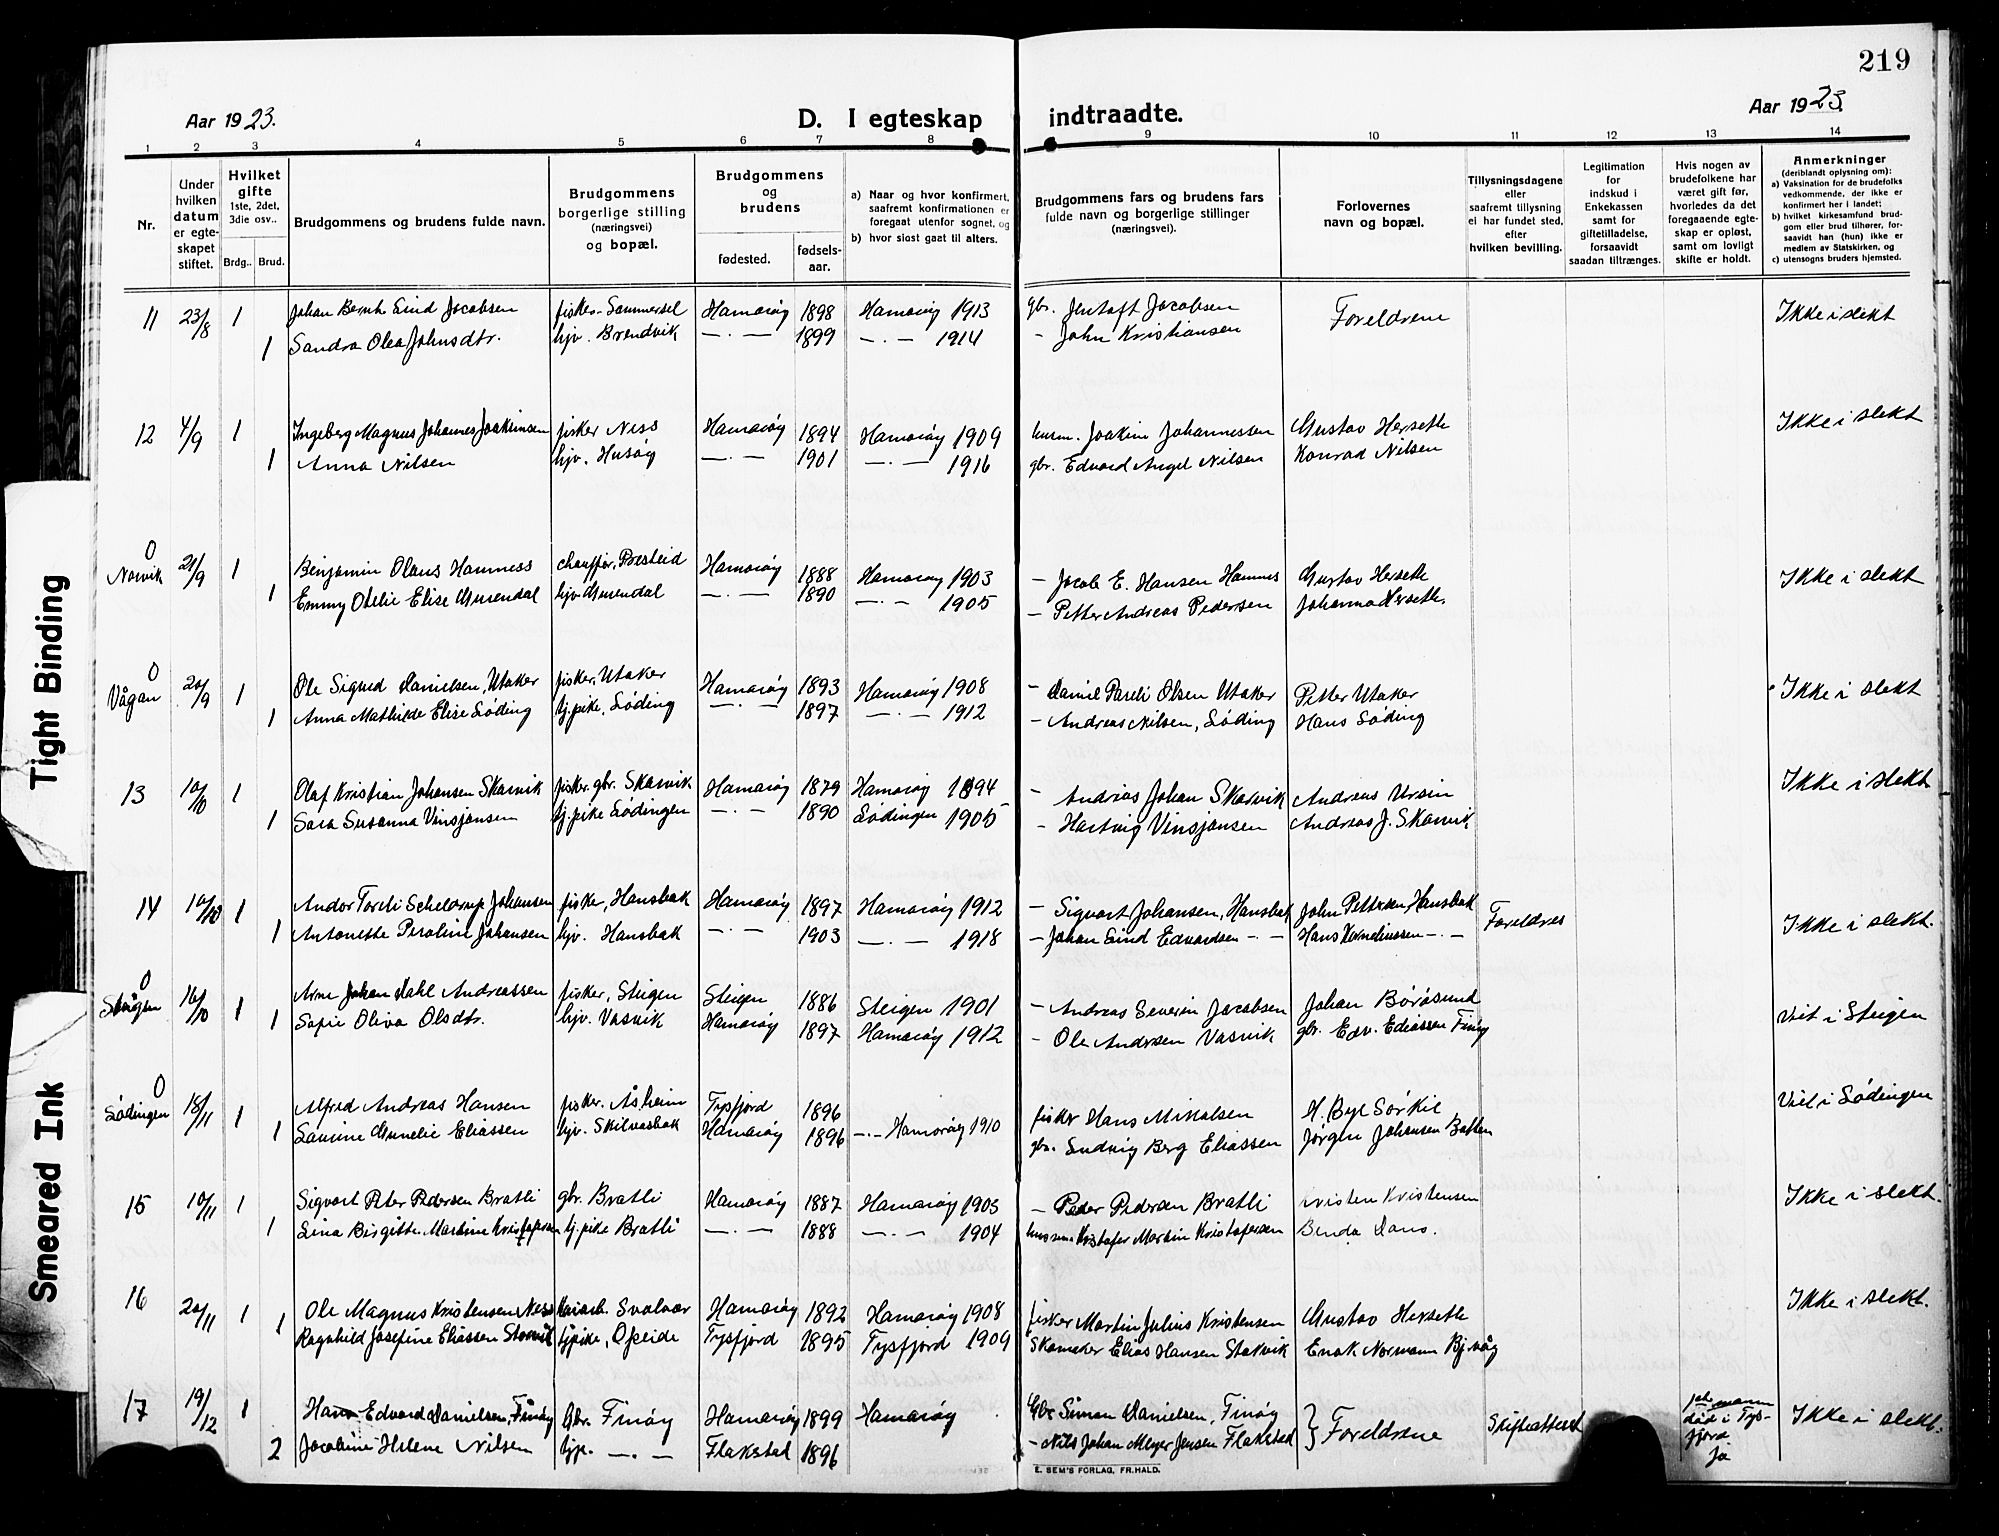 219
Aar 1923. D. I egteskap indtraadte. Aar 1923.
1 2 3 4 5 6 7 8 9 10 11 12 13 14
Nr.
Under hvilken datum er egte-skapet stiftet.
Hvilket gifte 1ste, 2det, 3die osv..
Brdg.. Brud.
Brudgommens og brudens fulde navn.
Brudgommens borgerlige stilling (næringsvei) og bopæl.
Brudgommens og brudens
fødested. fødsels-aar.
a) Naar og hvor konfirmert, saafremt konfirmationen er foregaat utenfor sognet, og
b) hvor sidst gaat til alters.
Brudgommens fars og brudens fars fulde navn og borgerlige stillinger (næringsvei).
Forlovernes navn og bopæl.
Tillysningsdagene eller saafremt tillysning ei har fundet sted, efter hvilken bevilling.
Legitimation for indskud i Enkekassen samt for giftetilladelse, forsaavidt saadan tiltrænges.
Hvis nogen av brudefolkene har været gift før, hvorledes da det foregaaende egte-skap er opløst, samt om lovligt skifte er holdt.
Anmerkninger (deriblandt oplysning om):
a) Vaksination for de brudefolks vedkommende, der ikke er konfirmert her i landet;
b) hvilket kirkesamfund brud-gom eller brud tilhører, for-saavidt han (hun) ikke er medlem av Statskirken, og
c) utensogns bruders hjemsted.
11 23/8 1 Johan Bernh Eind Jacobsen fisker- Sommersel Hamarøy 1898 Hamarøy 1913 gbr. Jentoft Jacobsen Foreldrene Ikke i slekt
1 Sandra Olea Johnsdtr. hjv. Brendvik —·— 1899 —·— 1914 — John Kristiansen
12 4/9 1 Ingeberg Magnus Johannes Joakimsen fisker Ness Hamarøy 1894 Hamarøy 1909 husm. Joakim Johannessen Gustav Herseth Ikke i slekt
1 Anna Nilsen hjv. Husøy —·— 1901 —·— 1916 gbr. Edvard Angel Nilsen Konrad Nilsen
0
Narvik 21/9 1 Benjamin Olaus Hamness chauffør, Presteid Hamarøy 1888 Hamarøy 1903 — Jacob E. Hansen Hamnes Gustav Herseth Ikke i slekt
1 Emmy Otelie Elise Gurendal hjv Gurendal —·— 1890 —·— 1905 — Petter Andreas Pedersen Johanna Herseth.
0
Vågan 20/9 1 Ole Sigurd Danielsen, Utaker fisker, Utaker Hamarøy 1893 Hamarøy 1908 — Daniel Pareli Olsen Utaker Petter Utaker Ikke i slekt
1 Anna Mathilde Elise Løding tj. pike, Løding —·— 1897 —·— 1912 — Andreas Nilsen, Løding Hans Løding
13 10/10 1 Olaf Kristian Johansen Skarvik fisker gbr. Skarvik Hamarøy 1879 Hamarøy 1894 — Andreas Johan Skarvik Andreas Ursin Ikke i slekt
1 Sara Susanna Vinsjansen tj. pike Lødingen —·— 1890 Lødingen 1905 — Hartvig Vinsjansen Andreas J. Skarvik
14 10/10 1 Andor Toreli Schelderup Johansen fisker, Hansbak Hamarøy 1897 Hamarøy 1912 — Sigvart Johansen, Hansbak John Pettersen, Hansbak Foreldres Ikke i slekt.
1 Antonette Peroline Johansen hjv. Hansbak —·— 1903 —·— 1918 — Johan Eind Edvardsen —·— Hans Korneliussen —·—
0
Steigen 16/10 1 Arne Johan Dahl Andreassen fisker, Steigen Steigen 1886 Steigen 1901 — Andreas Severin Jacobsen Johan Bôrøsund Viet i Steigen
1 Sofie Oliva Olsdtr. hjv. Vasvik Hamarøy 1897 Hamarøy 1912 — Ole Andersen Vasvik gbr. Edv. Ediassen Finøy
0
Lødingen 18/11 1 Alfred Andreas Hansen fisker. Åsheim Tysfjord 1896 fisker Hans Mikalsen H. Bye Sørkil Viet i Lødingen
1 Laurine Amelie Eliassen hjv. Skilvasbak Hamarøy 1896 —·— Hamarøy 1910 gbr. Ludvig Berg Eliassen Jørgen Johansen Bakken
15 10/11 1 Sigvart Peter Pedersen Bratli gbr. Bratli Hamarøy 1887 Hamarøy 1903 — Peder Pedersen Bratli Kristen Kristensen Ikke i slekt.
1 Lina Birgitte Martine Kristofersen tj. pike Bratli —·— 1888 —·— 1904 husm. Kristofer Martin Kristofersen Benda Dans.
16 20/11 1 Ole Magnus Kristensen Ness Kaiarb. Svolvær Hamarøy 1892 Hamarøy 1908 fisker Martin Julius Kristensen Gustav Herseth Ikke i slekt.
1 Ragnhild Josefine Eliassen Storvik tjpike, Opeide Tysfjord 1895 Tysfjord 1909 Skomaker Elias Hansen Stokvik Enok Normann Bjørvåg
17 19/12 1 Hans Edvard Danielsen, Finøy Gbr. Finøy Hamarøy 1899 Hamarøy Gbr Simon Danielsen, Finøy } Foreldrene Skifteattest 1ste mann død i Tys-fjord ja Ikke i slekt.
2 Jacobine Helene Nilsen tjp. —·— Flakstad 1896 — Nils Johan Meyer Jensen Flakstad
E. SEM'S FORLAG, FR.HALD.
Tight Binding
Smeared Ink